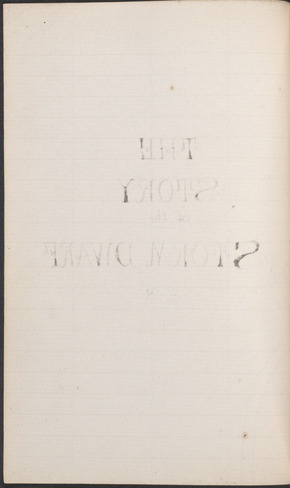 THE
STORY
of the
STORM DWARF